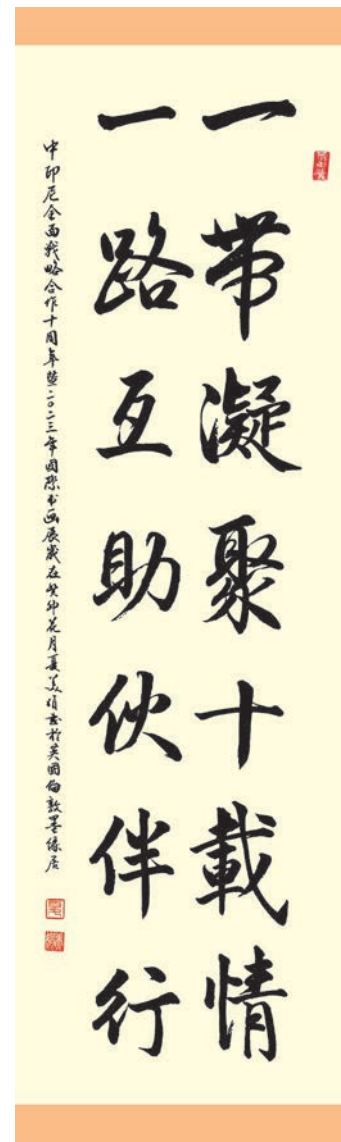 一帶凝聚十載情
一路互助伙伴行
中印尼全面战略合作十周年暨二〇二三年国际书画展歲在癸卯花月夏美
於英国伦敦墨缘居